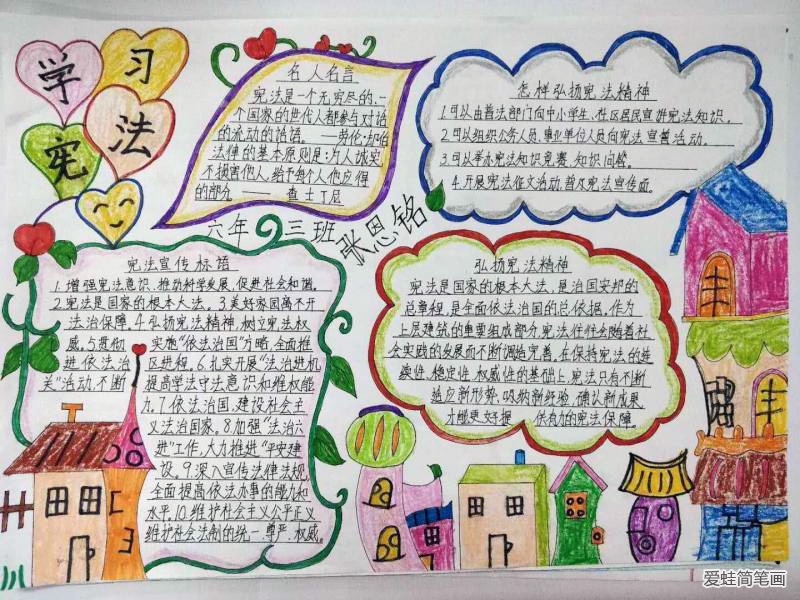 学习
宪法
名人名言
宪法是一个无穷尽的、一
个国家的世代人都参与对话
的流动的话语。——劳伦·却伯
法律的基本原则是:为人诚实
不损害他人,给予每个人他应得
的部分 —— 查士丁尼
怎样弘扬宪法精神
1.可以由普法部门向中小学生、社区居民宣讲宪法知识。
2.可以组织公务人员、事业单位人员向宪法宣誓活动。
3.可以举办宪法知识竞赛、知识问答。
4.开展宪法征文活动,普及宪法宣传面。
六年三班 张恩铭
宪法宣传标语
1.增强宪法意识,推动科学发展,促进社会和谐。
2.宪法是国家的根本大法。3.美好家园离不开
法治保障。4.弘扬宪法精神 树立宪法权
威。5.贯彻实施"依法治国"方略,全面推
进依法治区进程。6.扎实开展"法治进机
关"活动,不断提高学法中法意识和维权能
力。7.依法治国,建设社会主
义法治国家。8.加强"法治六
进"工作,大力推进"平安建
设。9.深入宣传法律法规
全面提高依法办事的能力和
水平10.维护社会主义公平正义
维护社会法制的统一、尊严、权威。
弘扬宪法精神
宪法是国家的根本大法,是治国安邦的
总章程,是全面依法治国的总依据。作为
上层建筑的重要组成部分,宪法往往会随着社
会实践的发展而不断调适完善。在保持宪法的连
续性、稳定性、权威性的基础上,宪法只有不断
适应新形势、吸纳新经验、确认新成果,
才能更好提供有力的宪法保障。
爱蛙简笔画